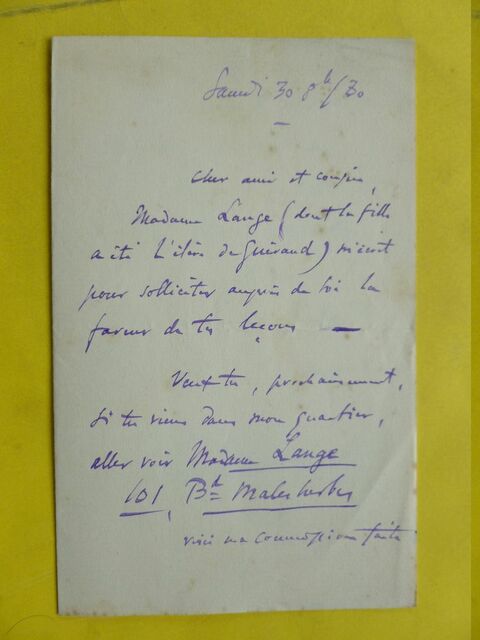 Samedi 30 8b/80
Cher ami et copain,
Madame Lange (dont la fille
a été l'élève de Guiraud) m'écrit
pour solliciter auprès de toi la
faveur de tes leçons —
Veux tu, prochainement,
si tu viens dans mon quartier,
aller voir Madame Lange
101, Bd Malesherbes
voici ma commission faite